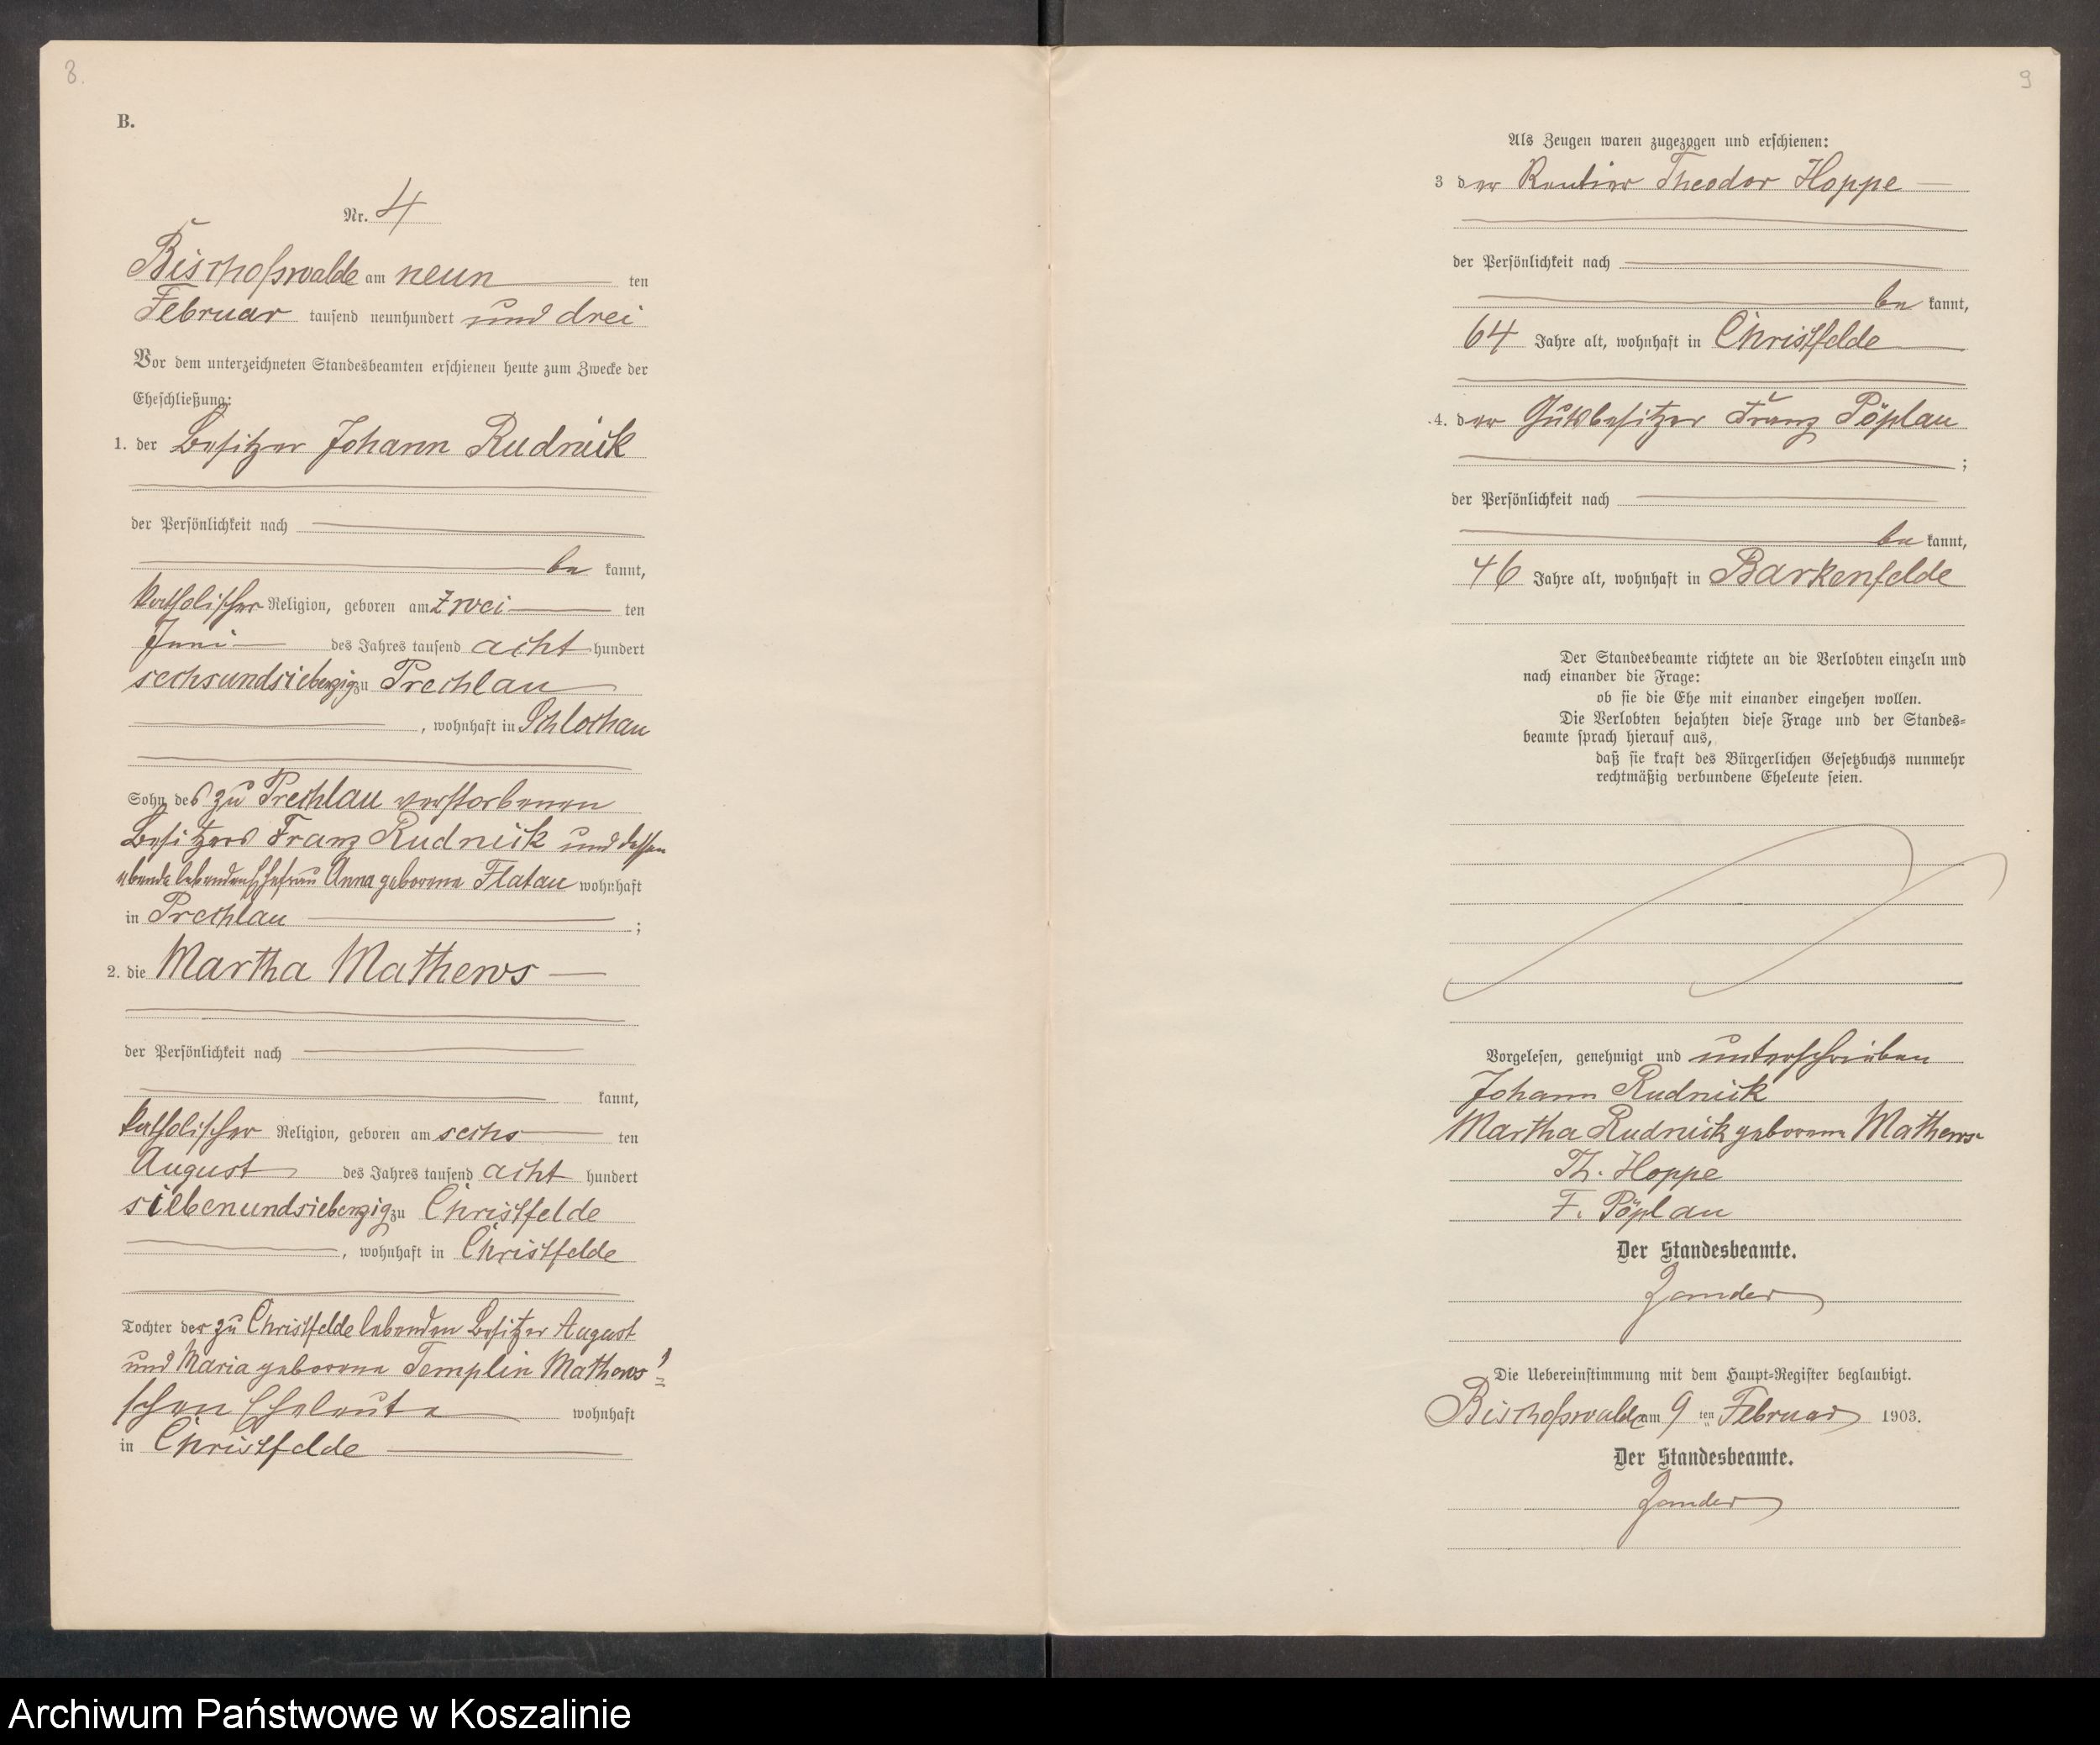 8.
B.
Nr. 4
Bischofswalde am neun ten
Februar tausend neunhundert und drei
Vor dem unterzeichneten Standesbeamten erschienen heute zum Zwecke der
Eheschließung:
1. der Besitzer Johann Rudnick
der Persönlichkeit nach
be kannt,
katholischer Religion, geboren am zwei ten
Juni des Jahres tausend acht hundert
sechsundsiebenzig zu Prechlau
, wohnhaft in Schlochau
Sohn des zu Prechlau verstorbenen
Besitzers Franz Rudnick und dessen
ebenda lebenden Ehefrau Anna geborene Flatau wohnhaft
in Prechlau ;
2. die Martha Mathews
der Persönlichkeit nach
kannt,
katholischer Religion, geboren am sechs ten
August des Jahres tausend acht hundert
siebenundsiebenzig zu Christfelde
, wohnhaft in Christfelde
Tochter der zu Christfelde lebenden Besitzer August
und Maria geborene Templin Mathews'
schen Eheleute wohnhaft
in Christfelde
9
Als Zeugen waren zugezogen und erschienen:
3 der Rentier Theodor Hoppe
der Persönlichkeit nach
be kannt,
64 Jahre alt, wohnhaft in Christfelde
4. der Gutsbesitzer Franz Pöplau
;
der Persönlichkeit nach
be kannt,
46 Jahre alt, wohnhaft in Barkenfelde
Der Standesbeamte richtete an die Verlobten einzeln und
nach einander die Frage:
ob sie die Ehe mit einander eingehen wollen.
Die Verlobten bejahten diese Frage und der Standes-
beamte sprach hierauf aus,
daß sie kraft des Bürgerlichen Gesetzbuchs nunmehr
rechtmäßig verbundene Eheleute seien.
Vorgelesen, genehmigt und unterschrieben
Johann Rudnick
Martha Rudnick geborene Mathews
Th. Hoppe
F. Pöplau
Der Standesbeamte.
Zander
Die Uebereinstimmung mit dem Haupt-Register beglaubigt.
Bischofswalde am 9 ten Februar 1903.
Der Standesbeamte.
Zander
Archiwum Państwowe w Koszalinie